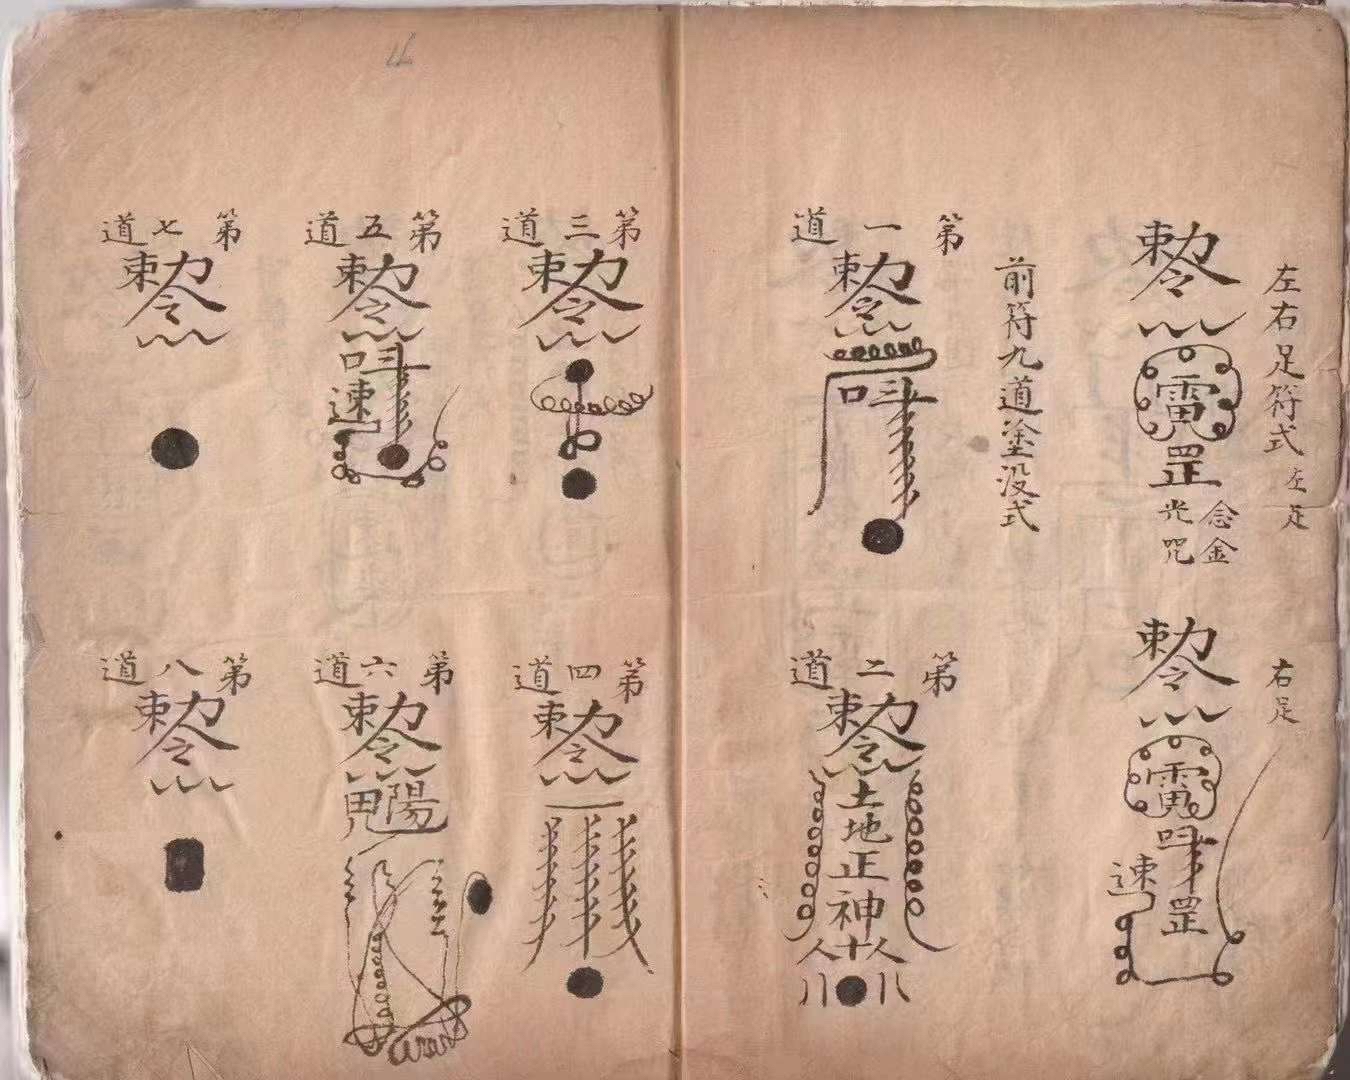 左右足符式 左足
勅令
雷
罡
念金光咒
右足
勅令
雷
罡
速
前符九道塗没式
第一道
勅令
第二道
勅令
土地正神
第三道
勅令
第四道
勅令
第五道
勅令
速
第六道
勅令
陽
第七道
勅令
第八道
勅令